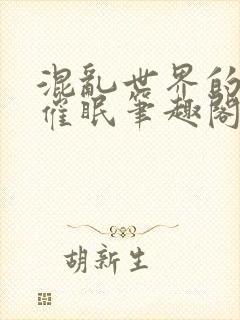 混亂世界的
催眠筆趣閣
胡新生